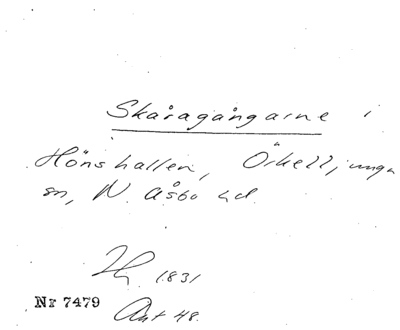 Skåragångarne i
Hönshallen, Örkelljunga
sn, N. Åsbo hd.
1831
Nr 7479
Ant 48.